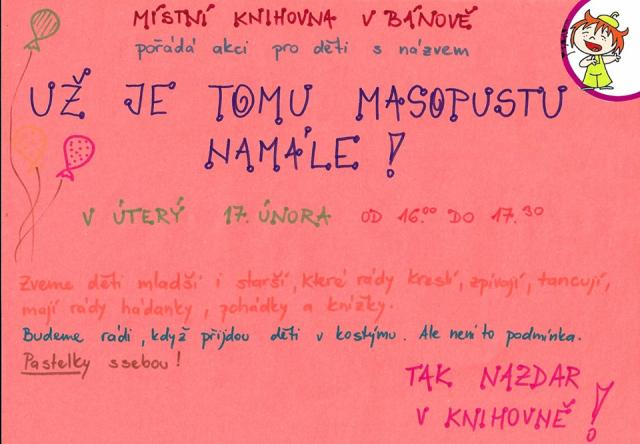 MÍSTNÍ KNIHOVNA V BÁNOVĚ
pořádá akci pro děti s názvem
UŽ JE TOMU MASOPUSTU
NAMÁLE !
V ÚTERÝ 17. ÚNORA OD 16.00 DO 17.30
Zveme děti mladší i starší, které rády kreslí, zpívají, tancují,
mají rády hádanky, pohádky a knížky.
Budeme rádi, když přijdou děti v kostýmu. Ale není to podmínka.
Pastelky ssebou!
TAK NAZDAR
V KNIHOVNĚ!